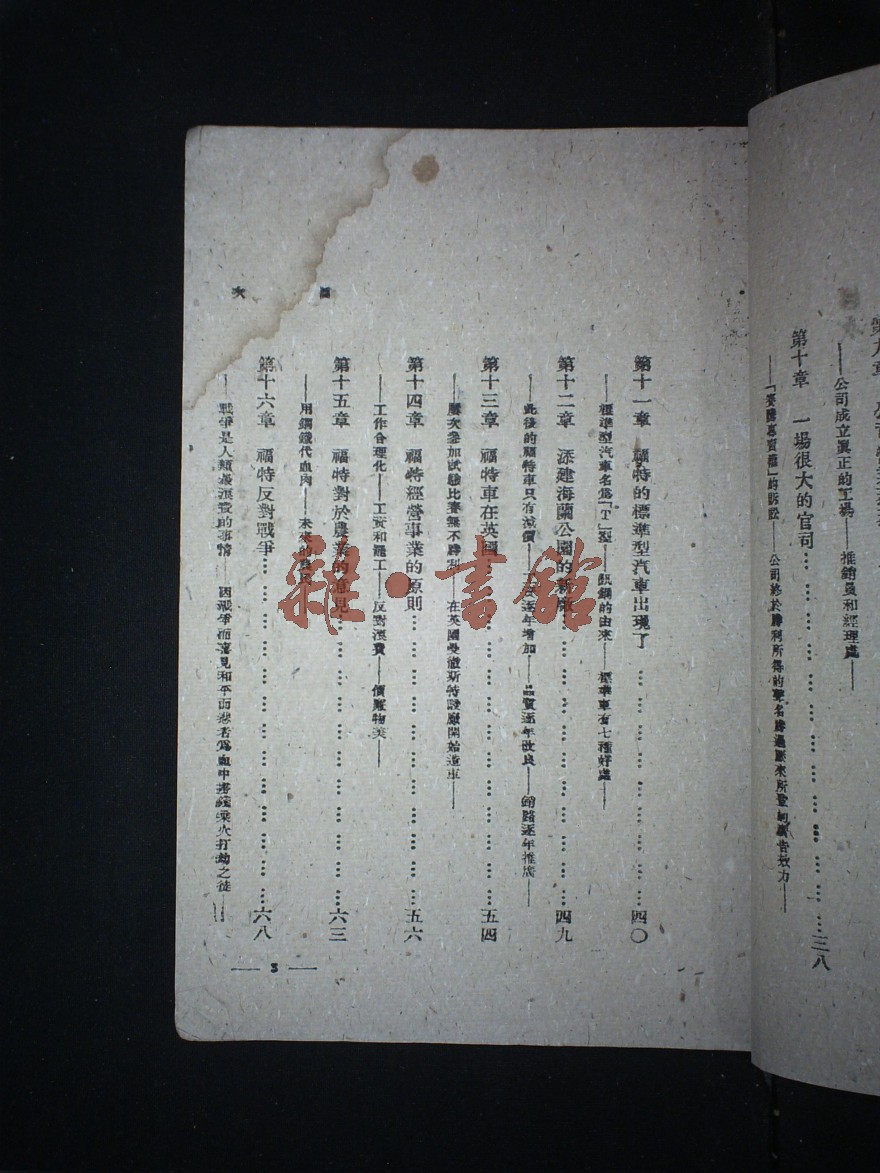 第十章　一場很大的官司……三八
公司成立真正的工場——推銷員和經理處——
第十一章　福特的標準型汽車出現了……四〇
——標準型汽車名為「T」型——釩鋼的由來——標準車有七種好處——
第十二章　添建海蘭公園的新廠……四九
——此後的福特車只有減價——逐年增加——品質逐年改良——銷路逐年推廣——
第十三章　福特車在英國……五四
——屢次參加試驗比賽無不勝利——在英國曼徹斯特設廠開始造車——
第十四章　福特經營事業的原則……五六
——工作合理化——工資和罷工——反對浪費——價廉物美——
第十五章　福特對於農業的意見……六三
——用鋼鐵代血肉——未來的農民
第十六章　福特反對戰爭……六八
——戰爭是人類最浪費的事情——因戰爭而喜見和平而悲者為血中撈錢乘火打劫之徒——
目次
— 3 —
雜·書館